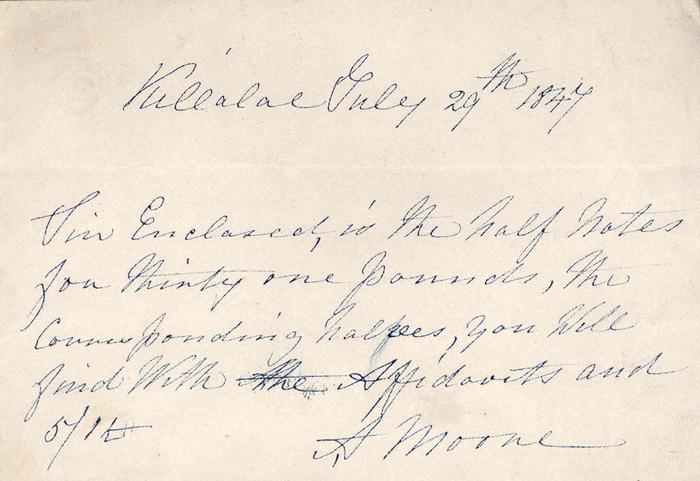 Killaloe July 29th 1847
Sir Enclosed, is the half Notes
for thirty one pounds, the
Corresponding halfees, you Will
find With the Affidavits and
5/1d
A Moore